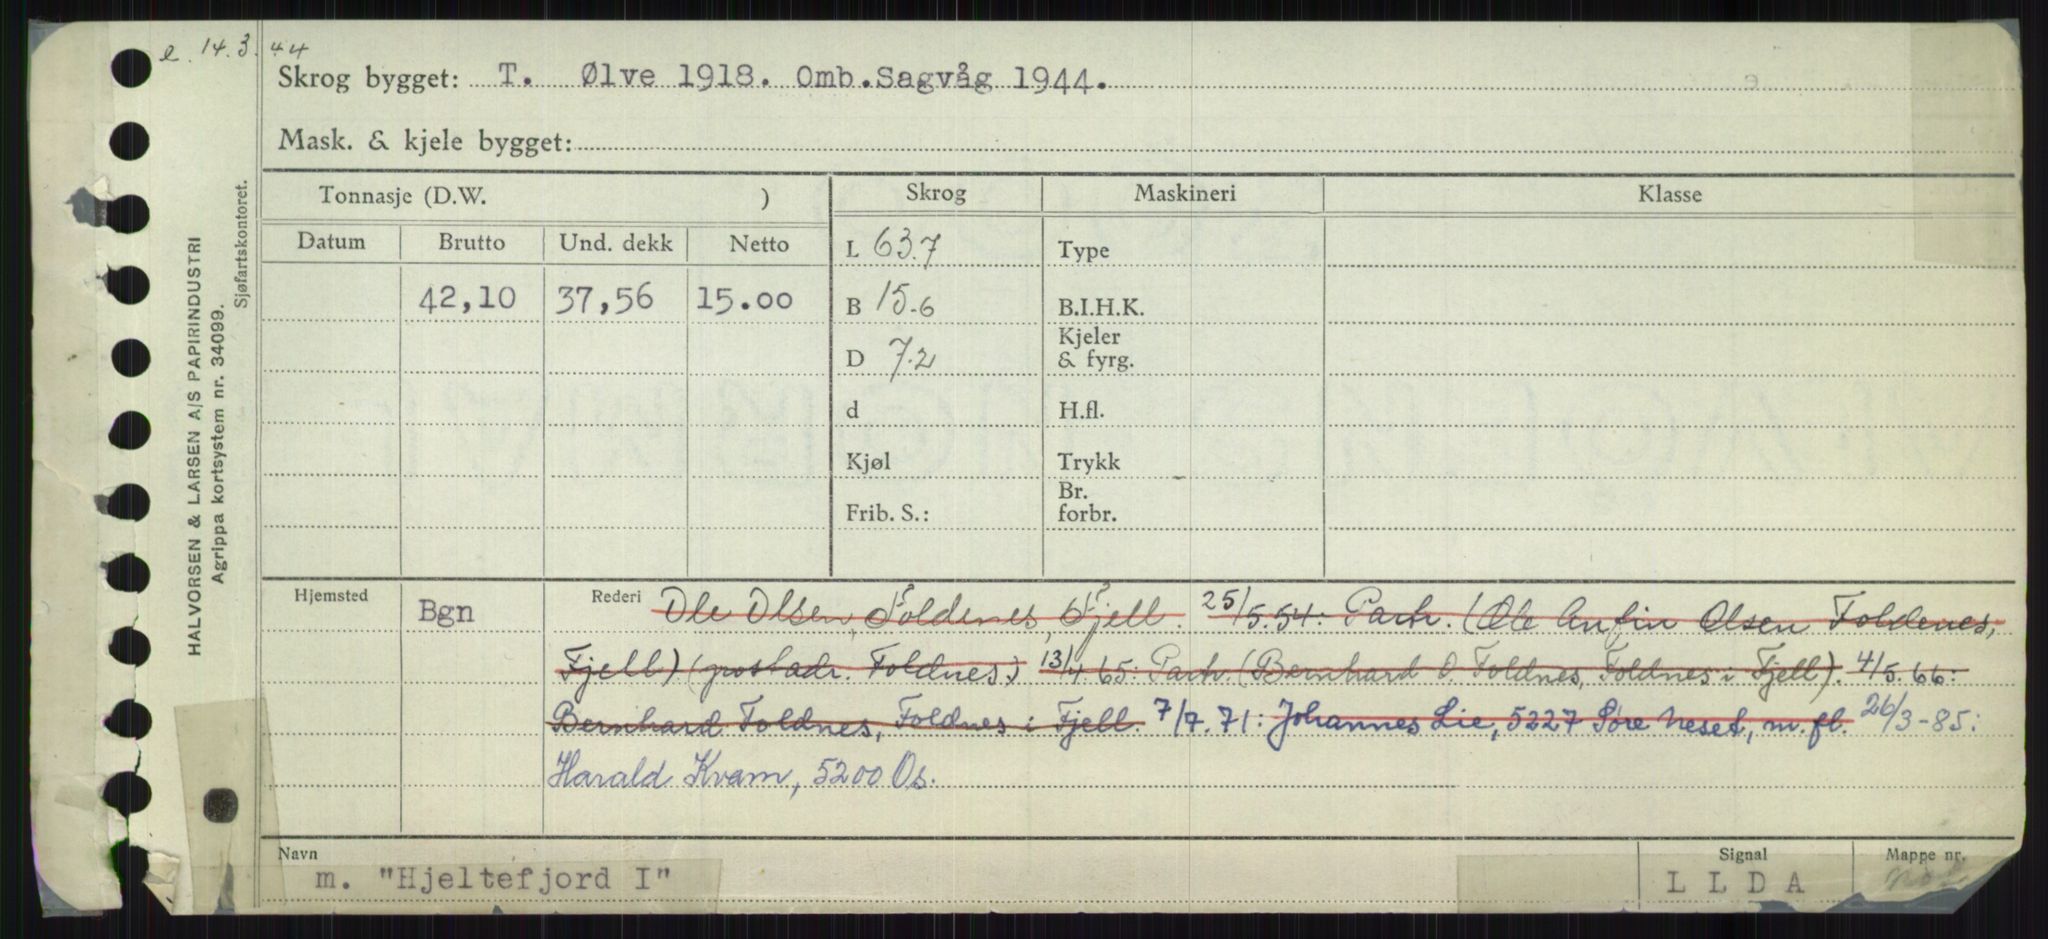 e. 14.3.44
Skrog bygget: T. Ølve 1918. Omb.Sagvåg 1944.
Mask. & kjele bygget:
HALVORSEN & LARSEN A/S PAPIRINDUSTRI
Agrippa kortsystem nr. 34099.
Sjøfartskontoret.
Tonnasje (D.W. )
Skrog
Maskineri
Klasse
Datum Brutto Und. dekk Netto
42,10 37,56 15.00
L 63.7
B 15.6
D 7.2
d
Kjøl
Frib. S.:
Type
B.I.H.K.
Kjeler
& fyrg.
H.fl.
Trykk
Br.
forbr.
Hjemsted Bgn Rederi Ole Olsen, Foldenes, Fjell. 25/5.54: Partr. (Ole Anfin Olsen Foldenes,
Fjell) (postadr. Foldnes) 13/4 65: Partr. (Bernhard O. Foldnes, Foldnes i Fjell). 4/5.66:
Bernhard Foldnes, Foldnes i Fjell. 7/7.71: Johannes Lie, 5227 Søre Neset, m.fl. 26/3-85:
Harald Kvam, 5200 Os.
Navn
m. "Hjeltefjord I"
Signal
L L D A
Mappe nr.